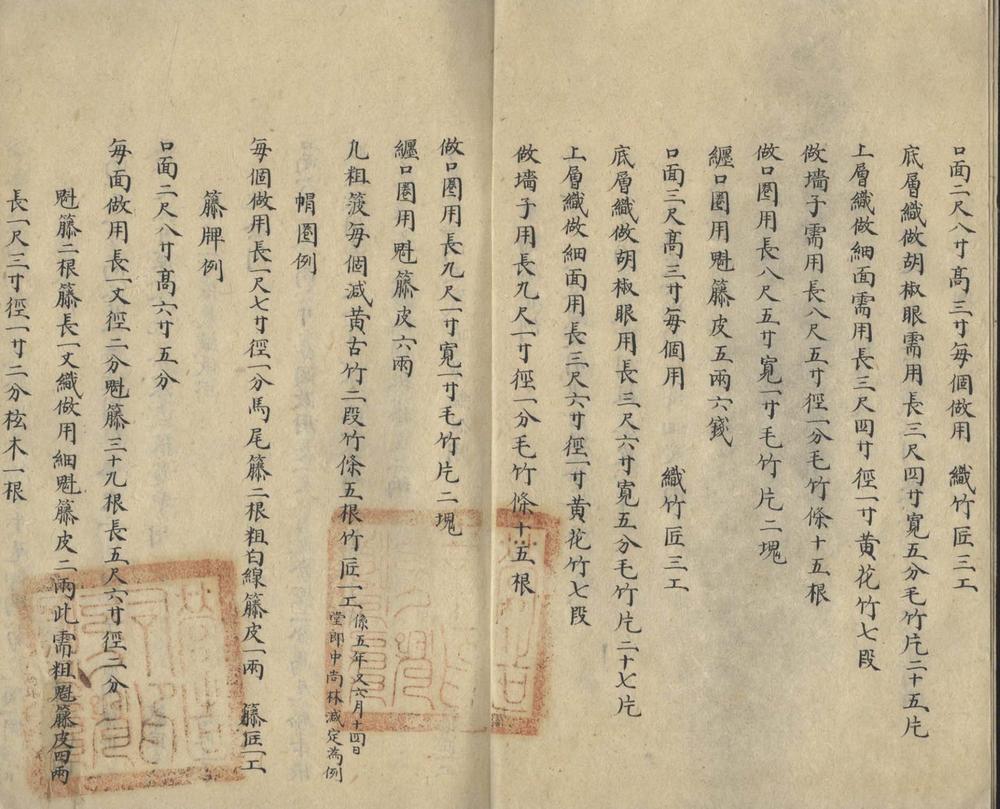 口面二尺八寸高三寸每個做用　織竹匠三工
底層織做胡椒眼需用長三尺四寸寬五分毛竹片二十五片
上層織做細面需用長三尺四寸徑一寸黃花竹七段
做墻子需用長八尺五寸徑一分毛竹條十五根
做口圈用長八尺五寸寬一寸毛竹片二塊
纏口圈用魁籐皮五兩六錢
口面三尺高三寸每個用　織竹匠三工
底層織做胡椒眼用長三尺六寸寬五分毛竹片二十七片
上層織做細面用長三尺六寸徑一寸黃花竹七段
做墻子用長九尺一寸徑一分毛竹條十五根
做口圈用長九尺一寸寬一寸毛竹片二塊
纏口圈用魁籐皮六兩
凡粗筱每個減黃古竹二段竹條五根竹匠一工
係五年又六月十四日
堂郎中尚林減定為例
帽圈例
每個做用長一尺七寸徑一分馬尾籐二根粗白線籐皮一兩　籐匠一工
籐牌例
口面二尺八寸高六寸五分
每面做用長一丈徑二分魁籐三十九根長五尺六寸徑二分
魁籐二根籐長一丈織做用細魁籐皮二兩此需粗魁籐皮四兩
長一尺三寸徑一寸二分柭木一根